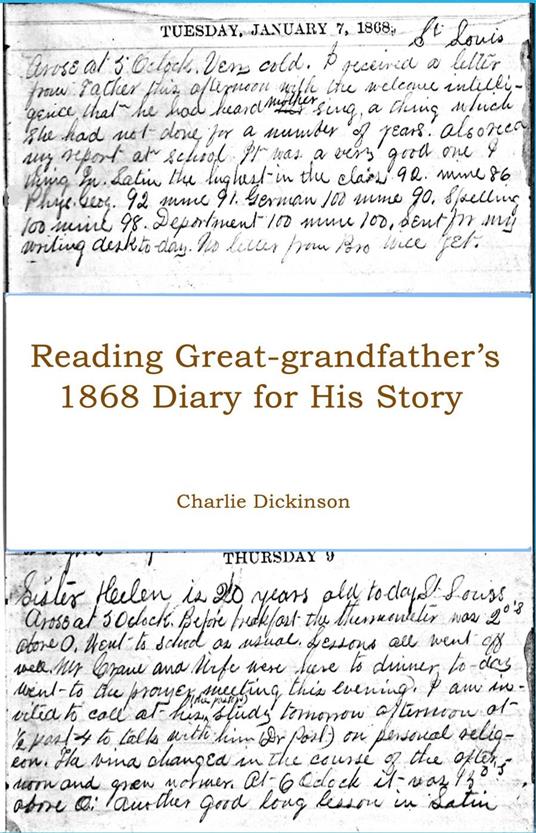 TUESDAY, JANUARY 7, 1868.
St Louis
Arose at 5 Oclock. Very cold. I received a letter
from Father this afternoon with the welcome intelli-
gence that he had heard mother sing, a thing which
she had not done for a number of years. Also rec'd
my report at school. It was a very good one I
think In Latin the highest in the class 92. mine 86
Phys. Geog. 92 mine 91. German 100 mine 90. Spelling
100 mine 98. Department 100 mine 100. Sent for my
writing desk to-day. No letter from Bro Will yet.
Reading Great-grandfather's
1868 Diary for His Story
Charlie Dickinson
THURSDAY 9
Sister Heelen is 20 years old to day St Louis
Arose at 5 Oclock. Before breakfast the thermometer was 2°
above 0. Went to school as usual. Lessons all went off
well. Mr Crane and Wife were here to dinner to-day
went to the prayer meeting this evening. I am in-
vited to call at his (the pastor's) study tomorrow afternoon at
½ past 4 to talk with him (Dr Post) on personal relig-
eon. The wind changed in the course of the after-
noon and grew warmer. At 6 Oclock it was
above 0. Another good long lesson in Latin